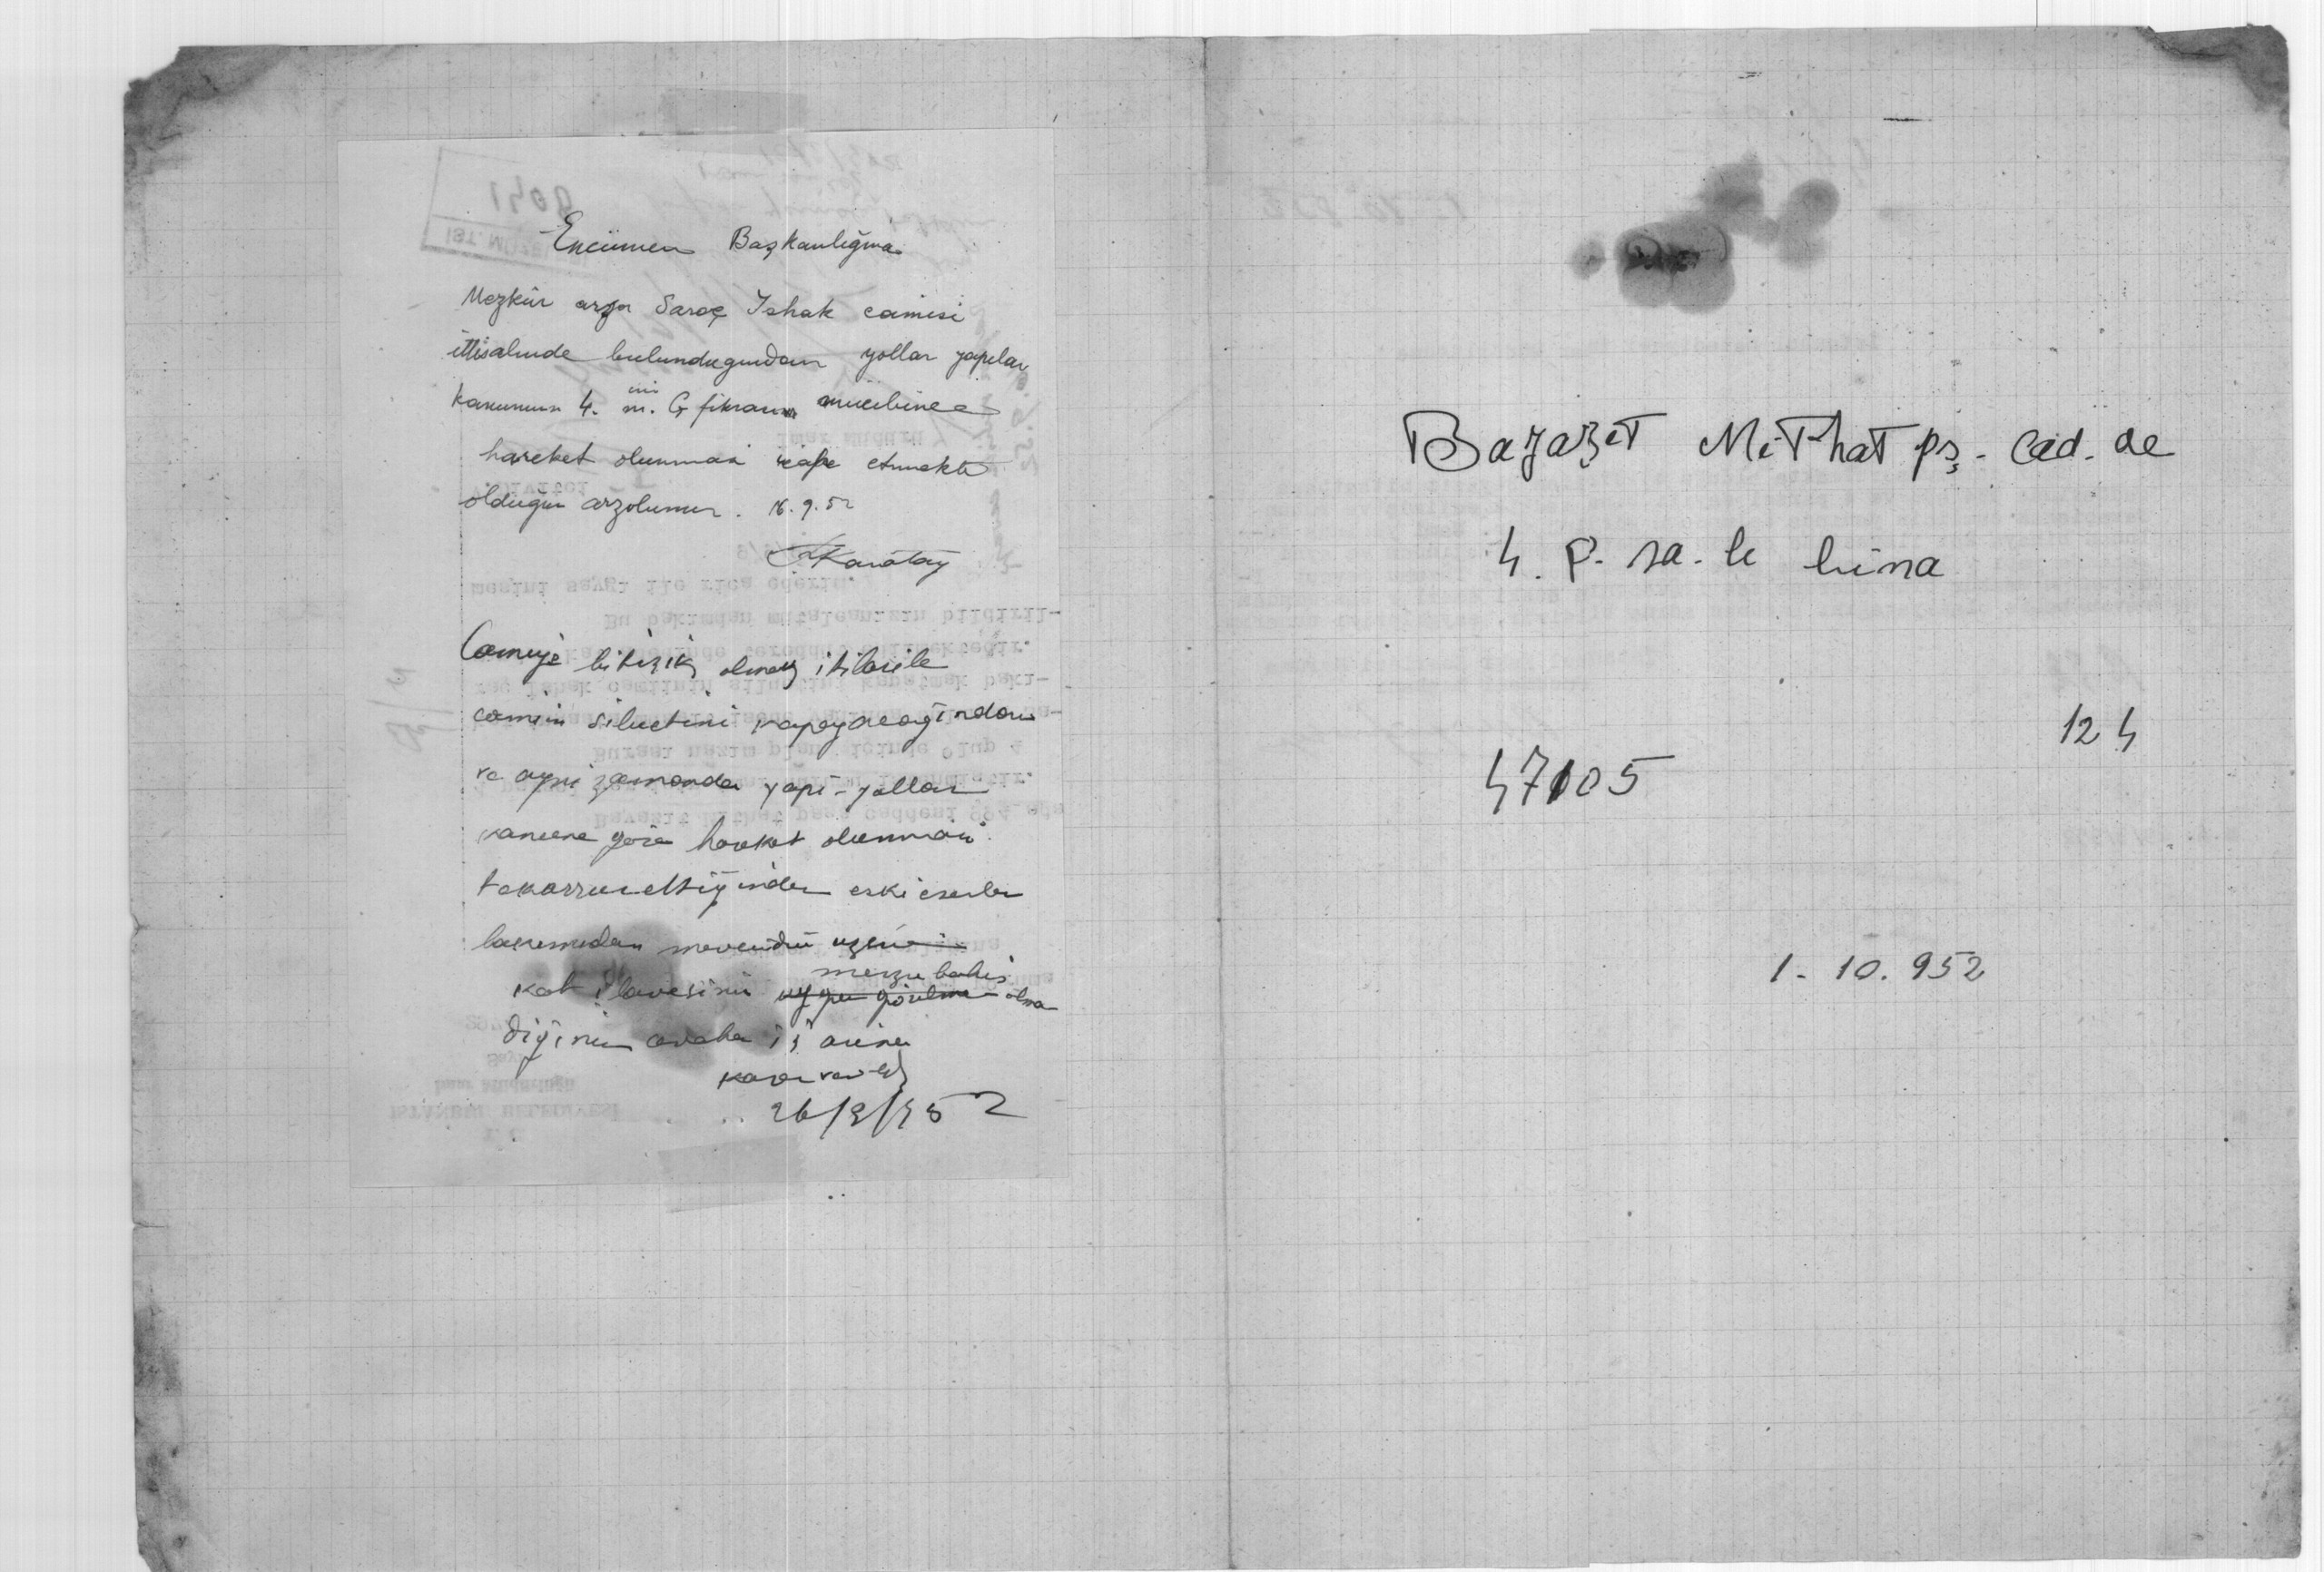 Encümen Başkanlığına
Mezkûr arsa Saraç İshak camisi
ittisalinde bulunduğundan yollar yapılar
kanunun 4. üni m. Ç fıkrasına mucibince
hareket olunması icabe etmekte
olduğu arzolunur. 16.9.52
Karatay
Camiye bitişik olmaq itibarile
camiin siluetini kapayacağından
ve ayni zamanda yapı-yollar
kanuna göre hareket olunması
takarrur ettiğinden eski eserler
bakımından mevcudu uzerine
kat ilavesinin uygun görülme mevzubahis olma
dığının cevaben iş'arına
karar verildi
26/9/952
Bayazıt MiThaT pş. Cad. de
4. P. sa. lı bina
124
47105
1-10.952